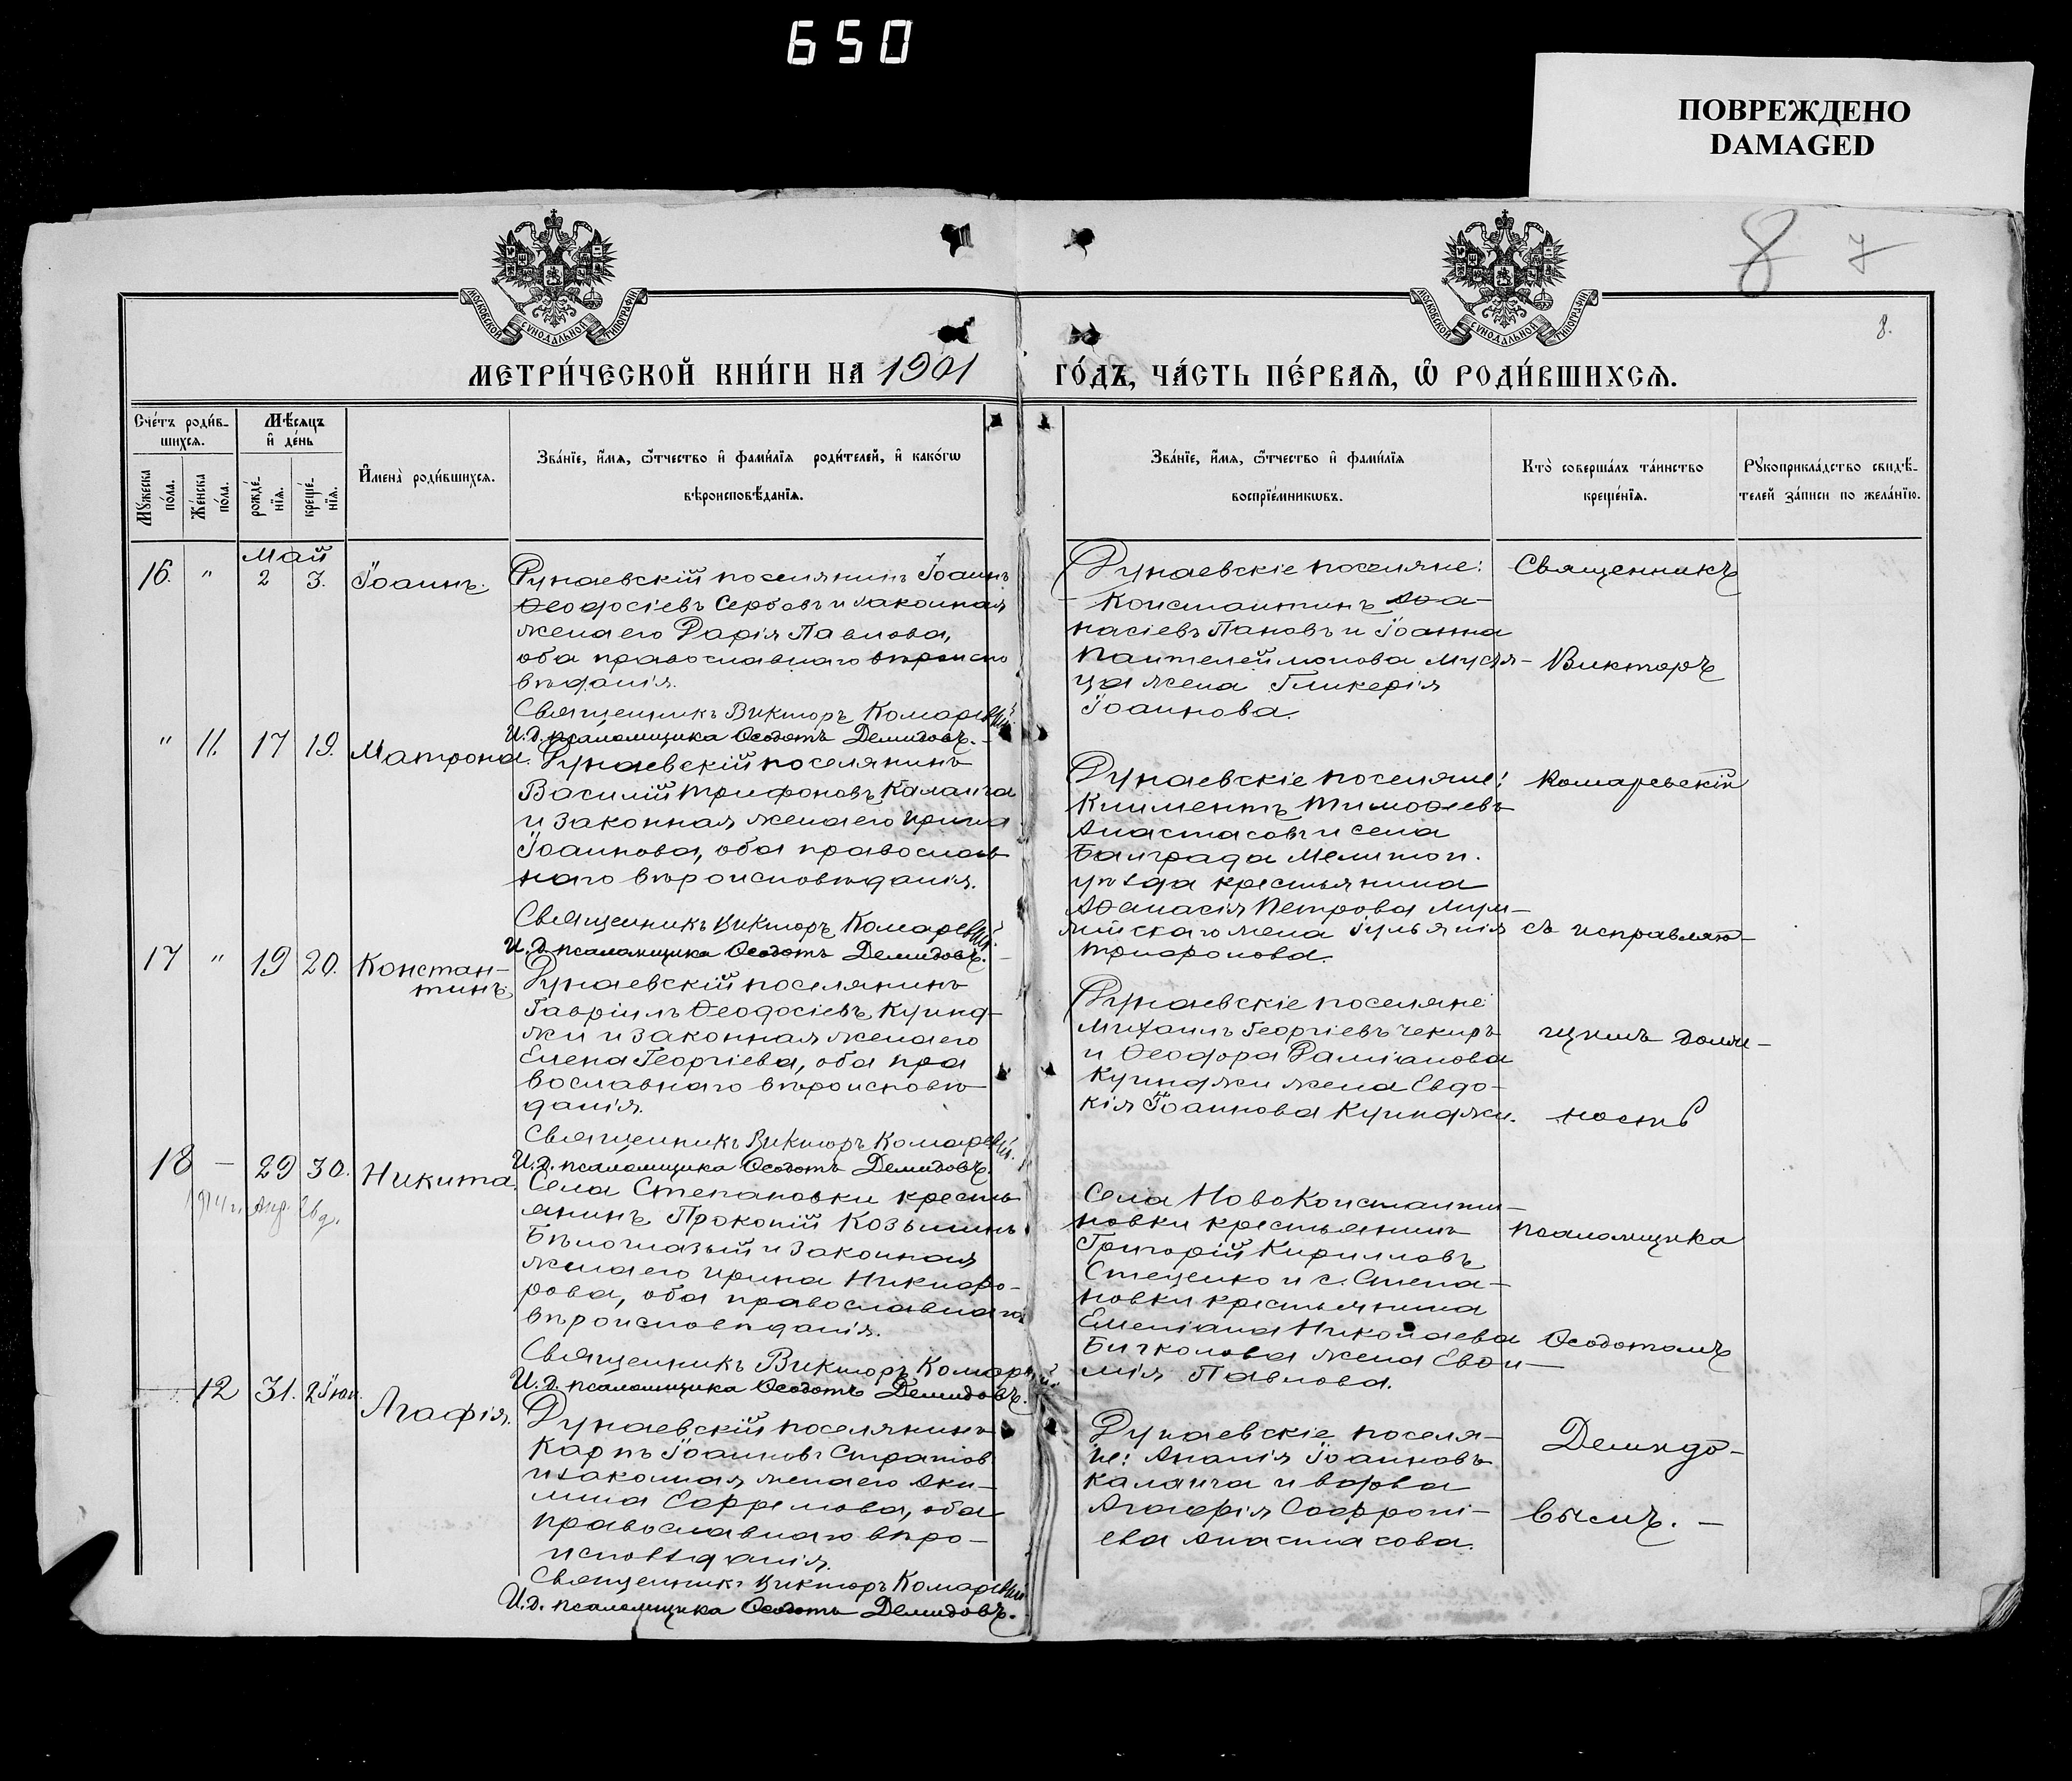 650
ПОВРЕЖДЕНО
DAMAGED
8 7
8.
МОСКОВСКОЙ СѴНОДАЛЬНОЙ ТИПОГРАФІИ
МОСКОВСКОЙ СѴНОДАЛЬНОЙ ТИПОГРАФІИ
МЕТРИ́ЧЕСКОЙ КНИ́ГИ НА 1901
ГО́ДЪ, ЧА́СТЬ ПЕ́РВАѦ, Ѡ҃ РОДИ́ВШИХСѦ.
Сче́тъ роди́в-
шихсѧ.
Мꙋжеска
по́ла.
Же́нска
по́ла.
Мѣ́сѧцъ
и҆ де́нь
рожде́-
нїѧ.
креще́-
нїѧ.
И҆мена̀ роди́вшихсѧ.
Зва́нїе, и҆́мѧ, ѻ҆́тчество и҆ фами́лїѧ роди́телей, и҆ како́гѡ
вѣроисповѣ́данїѧ.
Зва́нїе, и҆́мѧ, ѻ҆́тчество и҆ фами́лїѧ
воспрїе́мникѡвъ.
Кто̀ соверша́лъ та́инство
креще́нїѧ.
Рꙋкоприкла́дство свидѣ́-
телей за́писи по жела́нїю.
Май
16. " 2 3. Іоаннъ.
Дунаевскій поселянинъ Іоаннъ
Ѳеодосіевъ Сербовъ и законная
жена его Дарія Павлова,
оба православнаго вѣроиспо
вѣданія.
Священникъ Викторъ Комаревскій.
И. д. псаломщика Ѳеодотъ Демидовъ.
Дунаевскіе поселяне:
Константинъ Аѳа-
насіевъ Пановъ и Іоанна
Пантелеймонова
жена Гликерія
Іоаннова.
" 11. 17 19. Матрона.
Дунаевскій поселянинъ
Василій Трифоновъ Каланча
и законная жена его Ирина
Іоаннова, оба православ
наго вѣроисповѣданія.
Священникъ Викторъ Комаревскій.
И. д. псаломщика Ѳеодотъ Демидовъ.
Дунаевскіе поселяне:
Климентъ Тимоѳеевъ
Анастасовъ и села
Балграда Мелитоп.
уѣзда крестьянина
Аѳанасія Петрова
жена Іуліянія
Трифонова.
17 " 19 20. Констан-
тинъ.
Дунаевскій поселянинъ
Гавріилъ Ѳеодосіевъ Куюнд-
жи и законная жена его
Елена Георгіева, оба пра
вославнаго вѣроисповѣ
данія.
Священникъ Викторъ Комаревскій.
И. д. псаломщика Ѳеодотъ Демидовъ.
Дунаевскіе поселяне
Михаилъ Георгіевъ Чекиръ
и Ѳеодора Даміанова
Куюнджи жена Евдо-
кія Іоаннова Куюнджи.
18 — 29 30. Никита.
Села Степановки кресть
янинъ Прокопій Козьминъ
Бѣлоглазый и законная
жена его Ирина Никифо-
рова, оба православнаго
вѣроисповѣданія.
Священникъ Викторъ Комаревскій
И. д. псаломщика Ѳеодотъ Демидовъ.
Села Новоконстанти-
новки крестьянинъ
Григорій Кирилловъ
Стеценко и с. Степа-
новки крестьянина
Емеліана Николаева
жена Евѳи-
мія Павлова.
12 31. 2 Іюн. Агафія.
Дунаевскій поселянинъ
Карпъ Іоанновъ Стратов
и законная жена его Аки-
лина Ефремова, оба
православнаго вѣро-
исповѣданія.
Священникъ Викторъ Комаревскій
И. д. псаломщика Ѳеодотъ Демидовъ.
Дунаевскіе поселя-
не: Ананія Іоанновъ
Каланча и вдова
Агафія Софрони-
ева Анастасова.
Священникъ
Викторъ
Комаревскій
съ исправляю-
щимъ долж-
ность
псаломщика
Ѳеодотомъ
Демидо-
вымъ. —